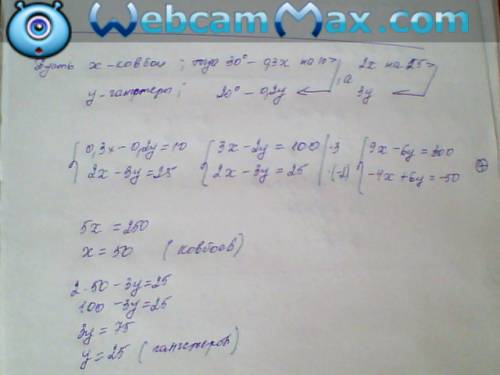 WebcamMax.com
Пусть x - ковбои ; тогда 30% - 0,3x на 10 > , а 2x на 25 >
y - гангстеры ; 20% - 0,2y 3y
{ 0,3x - 0,2y = 10 { 3x - 2y = 100 | ·3 { 9x - 6y = 300
2x - 3y = 25 2x - 3y = 25 | ·(-2) -4x + 6y = -50 +
5x = 250
x = 50 (ковбоев)
2·50 - 3y = 25
100 - 3y = 25
3y = 75
y = 25 (гангстеров)